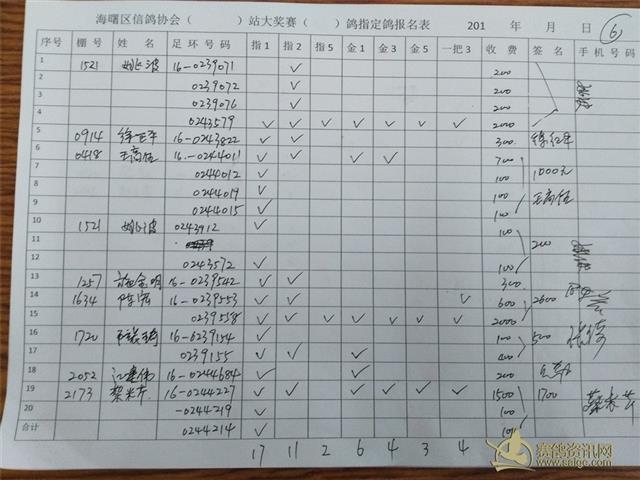 海曙区信鸽协会（ ）站大奖赛（ ）鸽指定鸽报名表 201 年 月 日 ⑥
序号 棚号 姓 名 足 环 号 码 指1 指2 指5 金1 金3 金5 一把3 收 费 签 名 手 机 号 码
1 1521 16-0239071 ✓ 200
2 0239072 ✓ 200
3 0239076 ✓ 200
4 0243579 ✓ ✓ ✓ ✓ ✓ ✓ ✓ 2000
5 0914 16-0243822 ✓ ✓ 300
6 0418 16-0244011 ✓ ✓ ✓ ✓ 700
7 0244012 ✓ 100 1000元
8 0244019 ✓ 100
9 0244015 ✓ 100
10 1521 0243912 ✓ 100
11 200
12 0243572 ✓ 100
13 1257 16-0239542 ✓ ✓ 300
14 1634 16-0239553 ✓ ✓ ✓ 600 2600
15 0239558 ✓ ✓ ✓ ✓ ✓ ✓ ✓ 2000
16 1720 16-0239154 ✓ 100 500
17 0239155 ✓ ✓ ✓ 400
18 2052 16-0244684 ✓ ✓ 200
19 2173 16-0244227 ✓ ✓ ✓ ✓ ✓ ✓ 1500 1700
20 -0244219 ✓ 100
合计 0244214 ✓ 100
17 11 2 6 4 3 4
赛鸽资讯网
www.saige.com